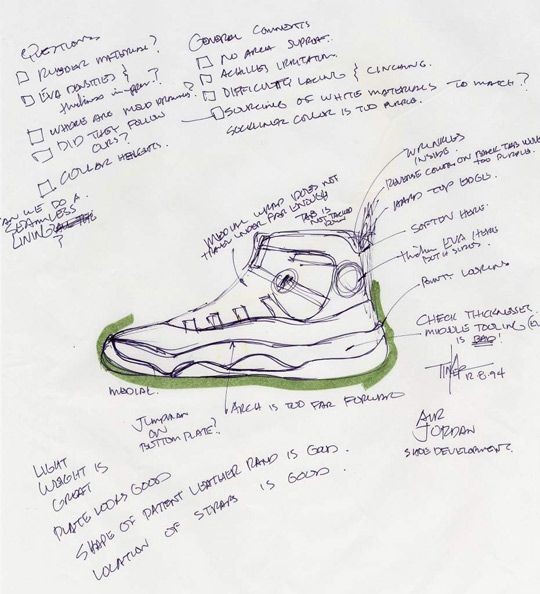 QUESTIONS
RUBBER MATERIALS?
EVA DENSITIES &
thickness in-proper?
WHERE ARE MOLD DRAWINGS?
DID THEY FOLLOW
OURS?
COLLAR HEIGHTS.
CAN WE DO A
SEAMLESS
LINING
?
GENERAL COMMENTS
NO ARCH SUPPORT.
ACHILLES IRRITATION.
DIFFICULTY LACING & CINCHING.
SOURCING OF WHITE MATERIALS TO MATCH?
SOCKLINER COLOR IS TOO PURPLE.
WRINKLES
INSIDE.
REVERSE COLOR ON BACK TAB
TOO PURPLE.
HARD TOP EDGE.
SOFTEN HERE.
thicker EVA HERE
BOTH SIDES.
POINTY LOOKING
CHECK THICKNESSES
MIDDLE TOOLING
IS BAD!
MEDIAL WRAP DOES NOT
TRAVEL UNDER FAR ENOUGH
TAB IS
NOT TACKED
DOWN
MEDIAL.
JUMPMAN
ON
BOTTOM PLATE?
ARCH IS TOO FAR FORWARD
12.8.94
AIR
JORDAN
SHOE DEVELOPMENT.
LIGHT
WEIGHT IS
GREAT
PLATE LOOKS GOOD
SHAPE OF PATENT LEATHER RAND IS GOOD.
LOCATION OF STRAPS IS GOOD.